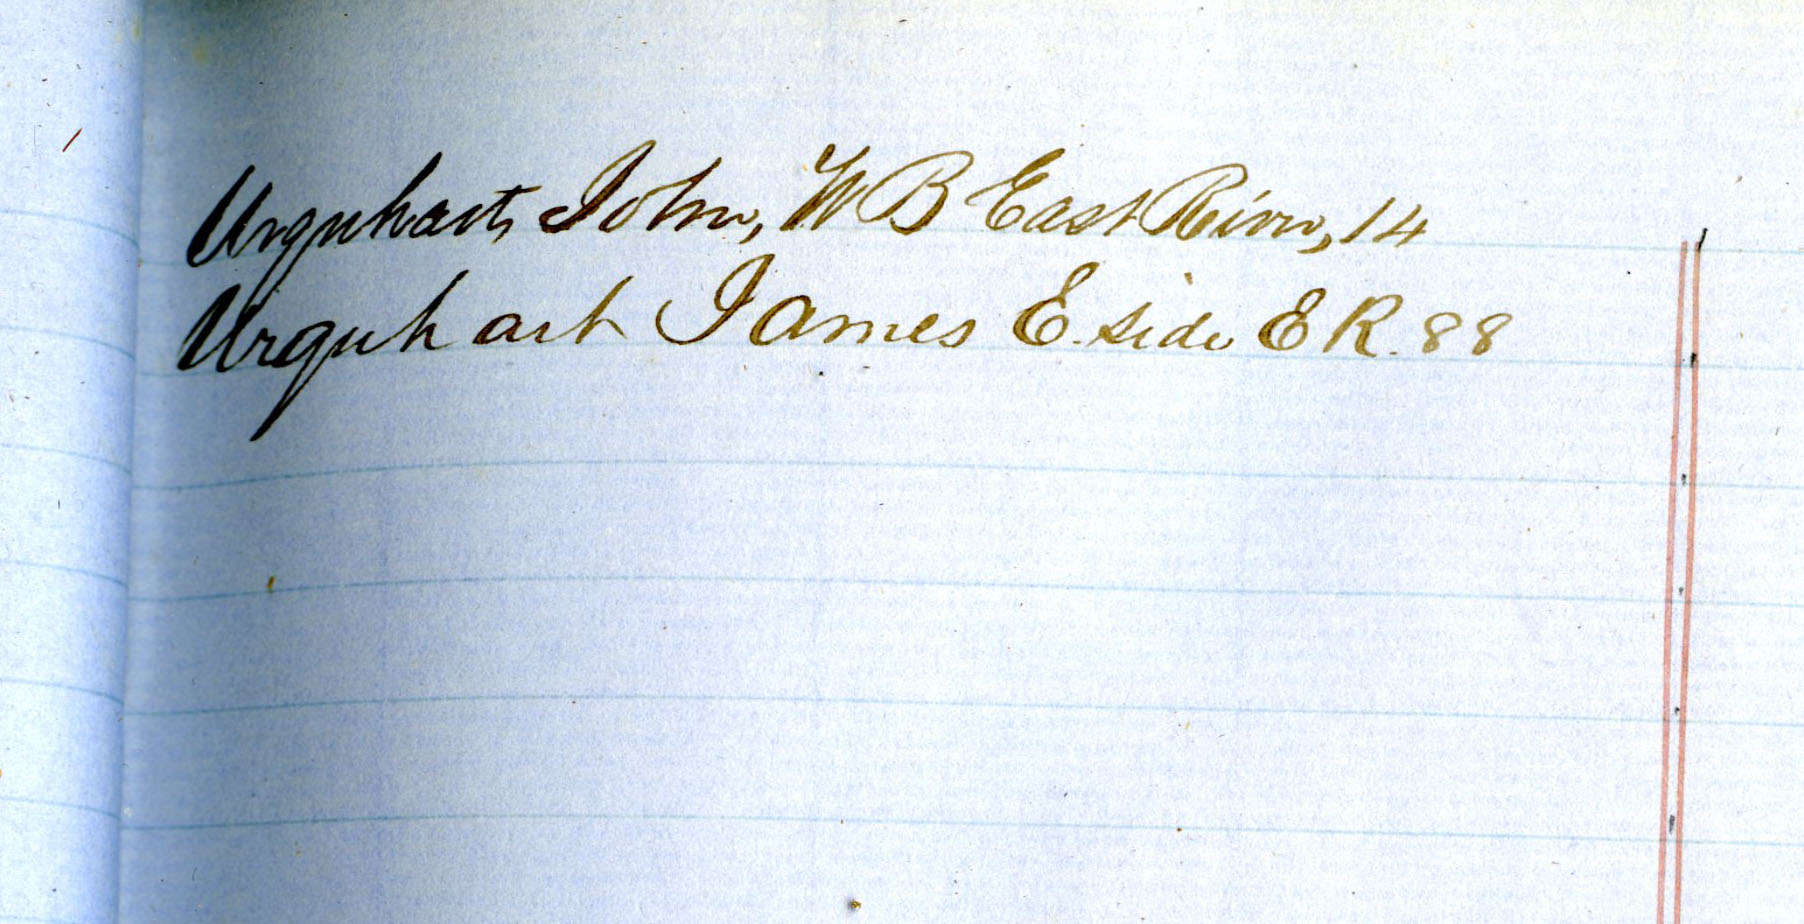 Urquhart, John, W B East River, 14
Urquhart James E. side E R. 88